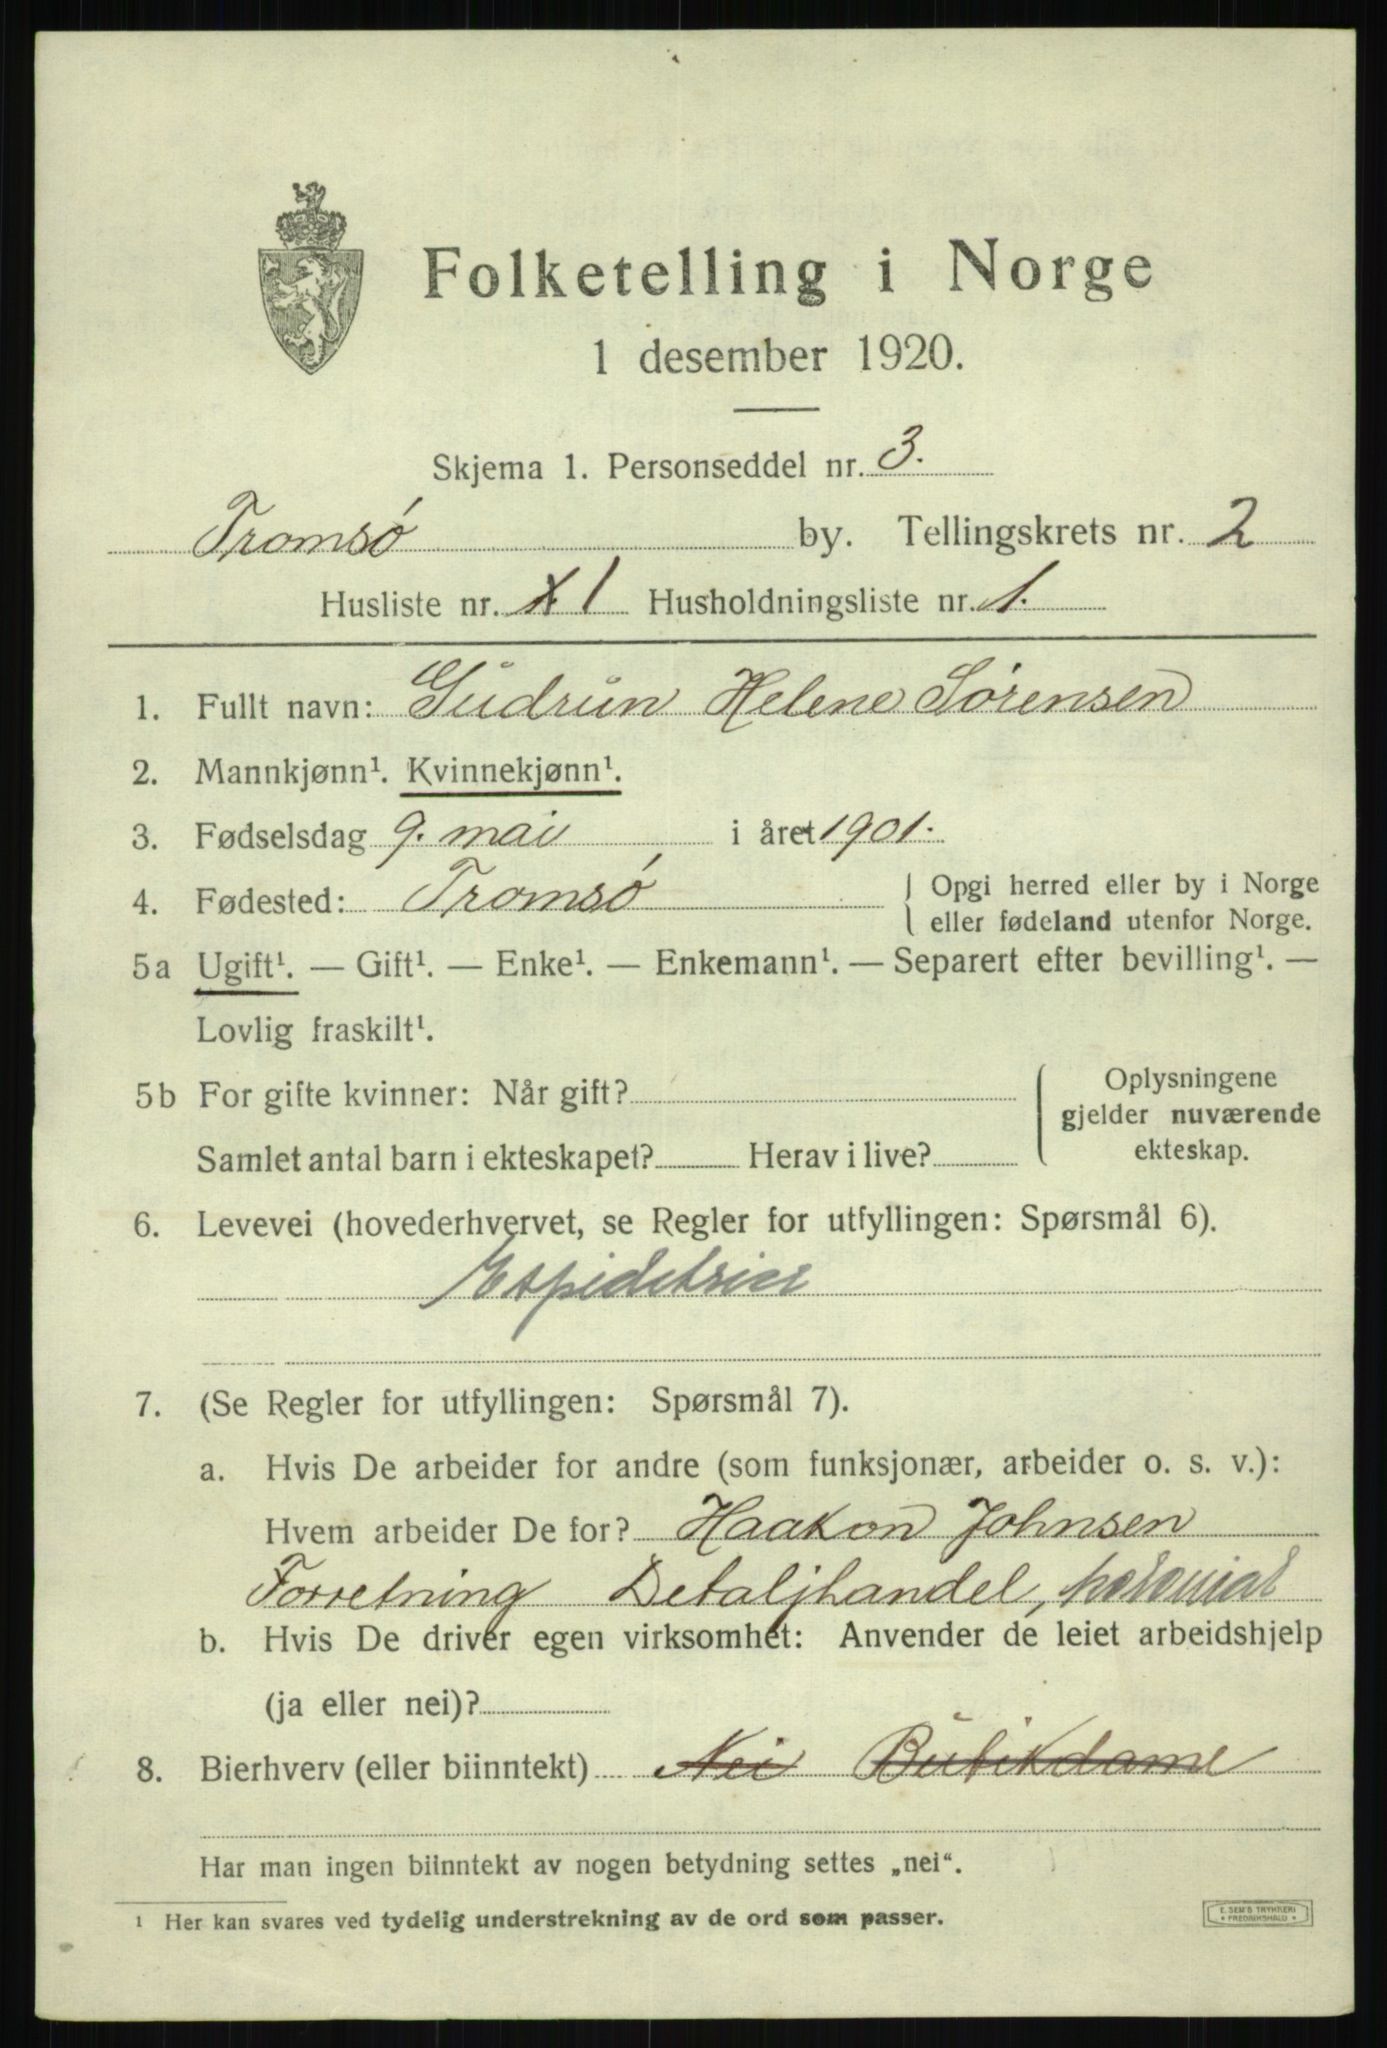 Folketelling i Norge
1 desember 1920.
Skjema 1. Personseddel nr. 3.
Tromsø by. Tellingskrets nr. 2
Husliste nr. 1 Husholdningsliste nr. 1.
1. Fullt navn: Gudrun Helene Sørensen
2. Mannkjønn¹. Kvinnekjønn¹.
3. Fødselsdag 9. mai i året 1901.
4. Fødested: Tromsø
Opgi herred eller by i Norge
eller fødeland utenfor Norge.
5a Ugift¹. — Gift¹. — Enke¹. — Enkemann¹. — Separert efter bevilling¹. —
Lovlig fraskilt¹.
5b For gifte kvinner: Når gift?
Samlet antal barn i ekteskapet? Herav i live?
Oplysningene
gjelder nuværende
ekteskap.
6. Levevei (hovederhvervet, se Regler for utfyllingen: Spørsmål 6).
Expeditrice
7. (Se Regler for utfyllingen: Spørsmål 7).
a. Hvis De arbeider for andre (som funksjonær, arbeider o. s. v.):
Hvem arbeider De for? Haakon Johnsen
Forretning Detaljhandel, kolonial
b. Hvis De driver egen virksomhet: Anvender de leiet arbeidshjelp
(ja eller nei)?
8. Bierhverv (eller biinntekt) Nei Butikdame
Har man ingen biinntekt av nogen betydning settes „nei“.
¹ Her kan svares ved tydelig understrekning av de ord som passer.
E. SEM'S TRYKKERI
• FREDRIKSHALD •